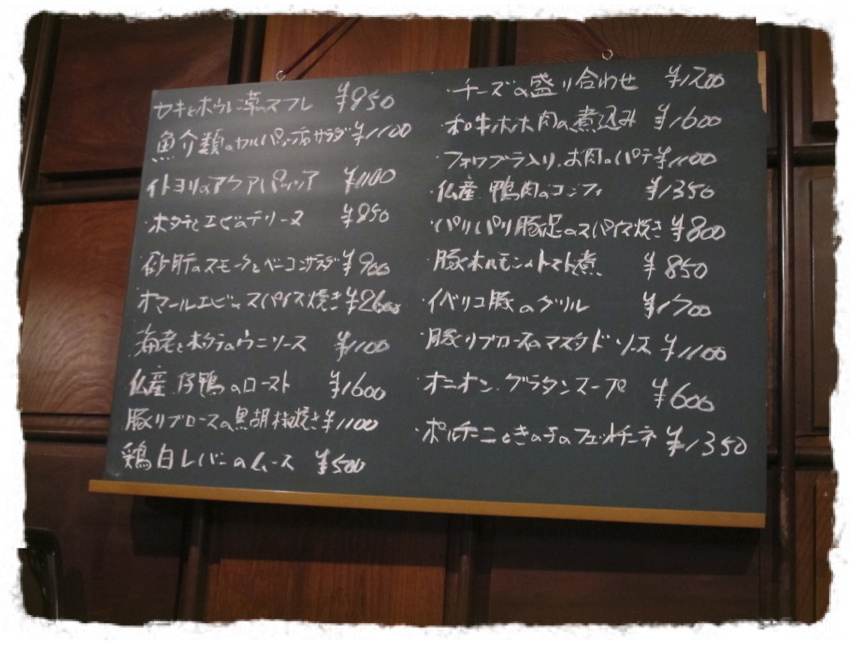 カキとホウレン草のスフレ ¥950
魚介類のカルパッチョ風サラダ ¥1100
イトヨリのアクアパッツァ ¥1100
ホタテとエビのテリーヌ ¥850
砂肝のスモークとベーコンサラダ ¥900
オマールエビのスパイス焼き
海老とホタテのウニソース ¥1100
仏産 仔鴨のロースト ¥1600
豚リブロースの黒胡椒焼き ¥1100
鶏白レバーのムース ¥500
・チーズの盛り合わせ ¥1200
・和牛ホホ肉の煮込み ¥1600
・フォワグラ入り お肉のパテ ¥1100
・仏産 鴨肉のコンフィ ¥1350
・パリパリ豚足のスパイス焼き ¥800
・豚ホルモンのトマト煮 ¥850
・イベリコ豚のグリル ¥1700
・豚リブロースのマスタードソース ¥1100
・オニオン グラタンスープ ¥600
・ポルチーニときのこのフェットチーネ ¥1350